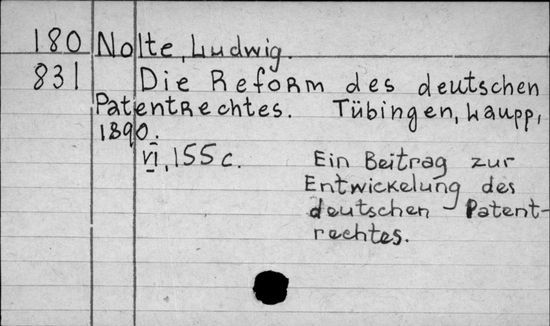 180 Nolte, Ludwig.
831 Die Reform des deutschen
Patentrechtes. Tübingen, Laupp,
1890.
VI, 155 c. Ein Beitrag zur
Entwickelung des
deutschen Patent-
rechtes.